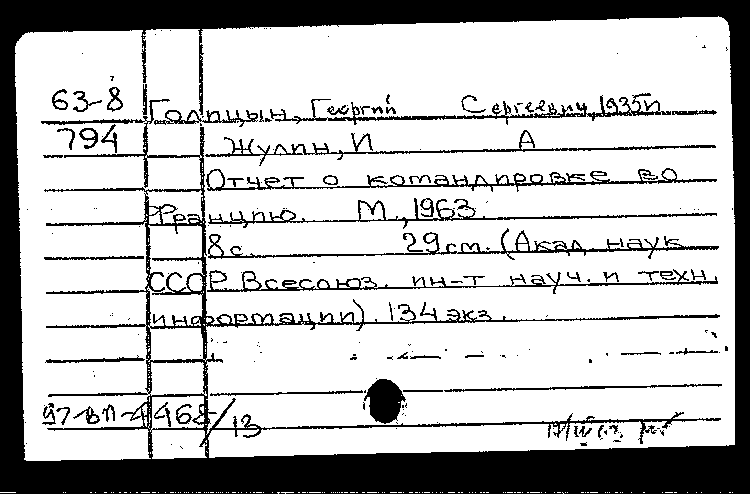 63-8 Голицын, Георгий Сергеевич, 1935п
794 Жулин, И А
Отчет о командировке во
Францию. М., 1963.
8с. 29см. (Акад. наук
СССР. Всесоюз. ин-т науч. и техн.
информации). 134 экз.
97-ВП-4468/13